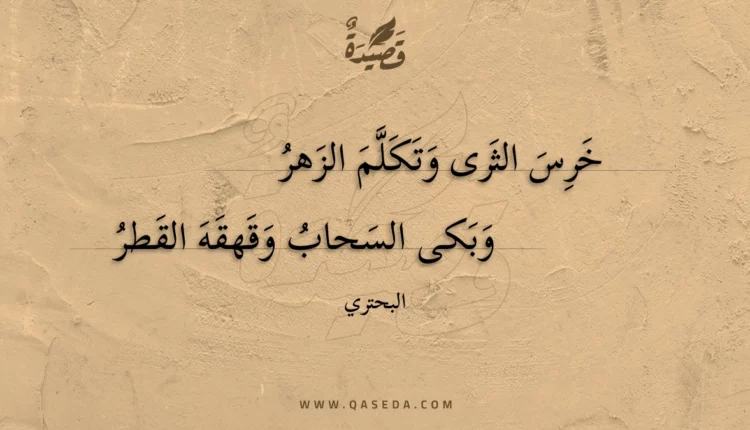 قَصِيدَةٌ
خَرِسَ الثَرى وَتَكَلَّمَ الزَهرُ
وَبَكى السَحابُ وَقَهقَهَ القَطرُ
البحتري
WWW.QASEDA.COM